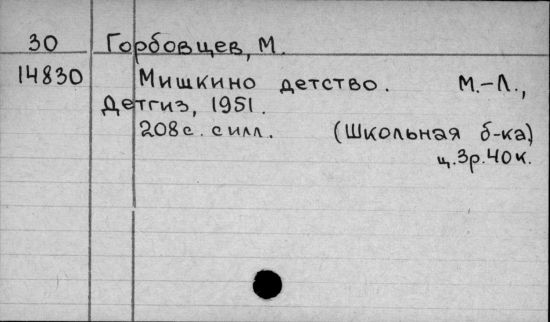 30 Горбовцев, М.
14830 Мишкино детство. М.-Л.,
Детгиз, 1951.
208с. с илл. (Школьная б-ка)
ц.3р.40к.